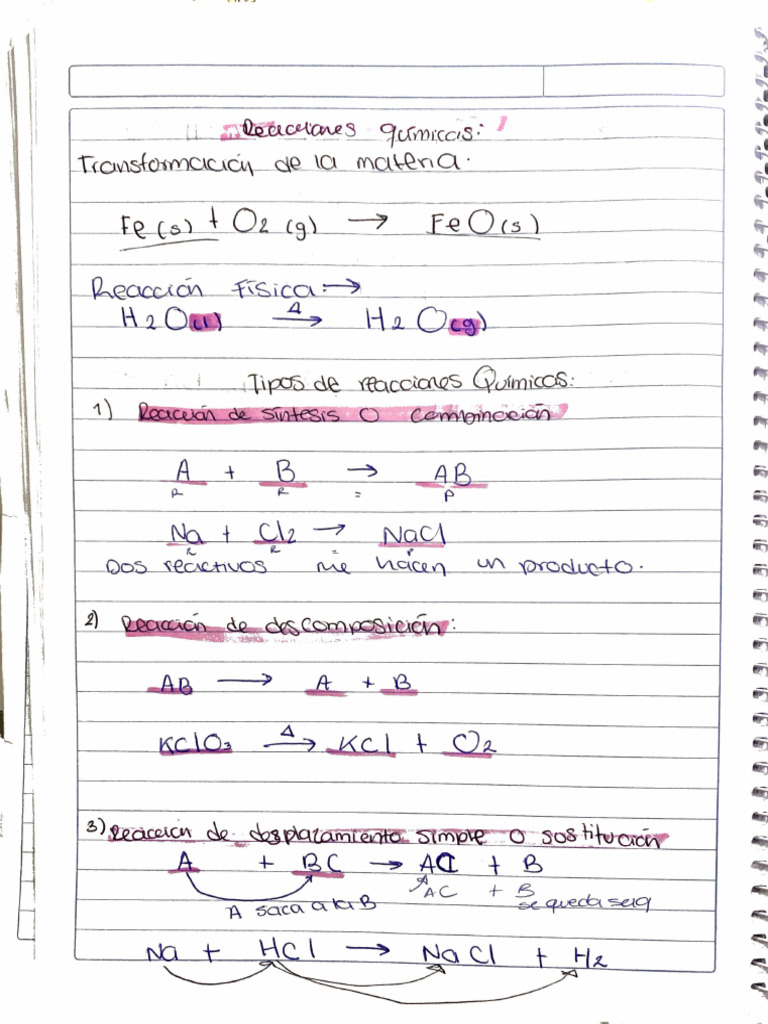 Reacciones químicas:
Transformación de la materia.
Fe(s) + O2(g) → FeO(s)
Reacción Física: →
H2O(l) Δ→ H2O(g)
Tipos de reacciones Químicas:
1) Reacción de síntesis o combinación
A + B → AB
R R = P
Na + Cl2 → NaCl
R R = P
Dos reactivos me hacen un producto.
2) Reacción de descomposición:
AB → A + B
KClO3 Δ→ KCl + O2
3) Reacción de desplazamiento simple o sostitución
A + BC → AC + B
AC + B
A saca a la B se queda sola
Na + HCl → NaCl + H2